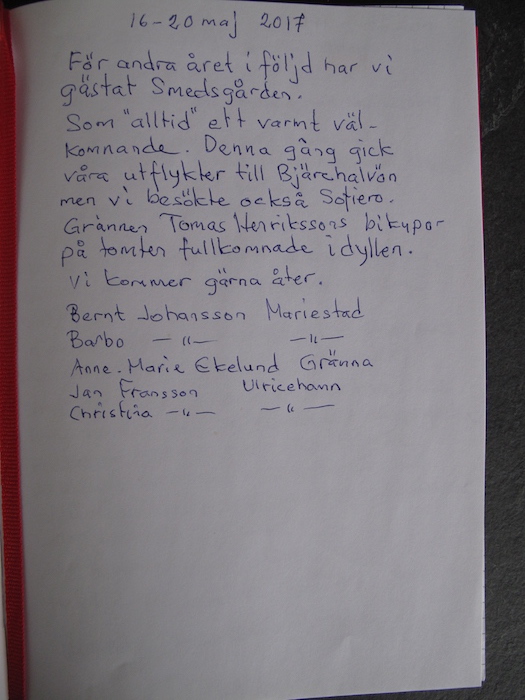 16-20 maj 2017
För andra året i följd har vi
gästat Smedsgården.
Som "alltid" ett varmt väl-
komnande. Denna gång gick
våra utflykter till Bjärehalvön
men vi besökte också Sofiero.
Grannen Tomas Henrikssons bikupor
på tomten fullkomnade idyllen.
Vi kommer gärna åter.
Bernt Johansson Mariestad
Barbo —"— —"—
Anne-Marie Ekelund Gränna
Jan Fransson Ulricehamn
Christina —"— —"—